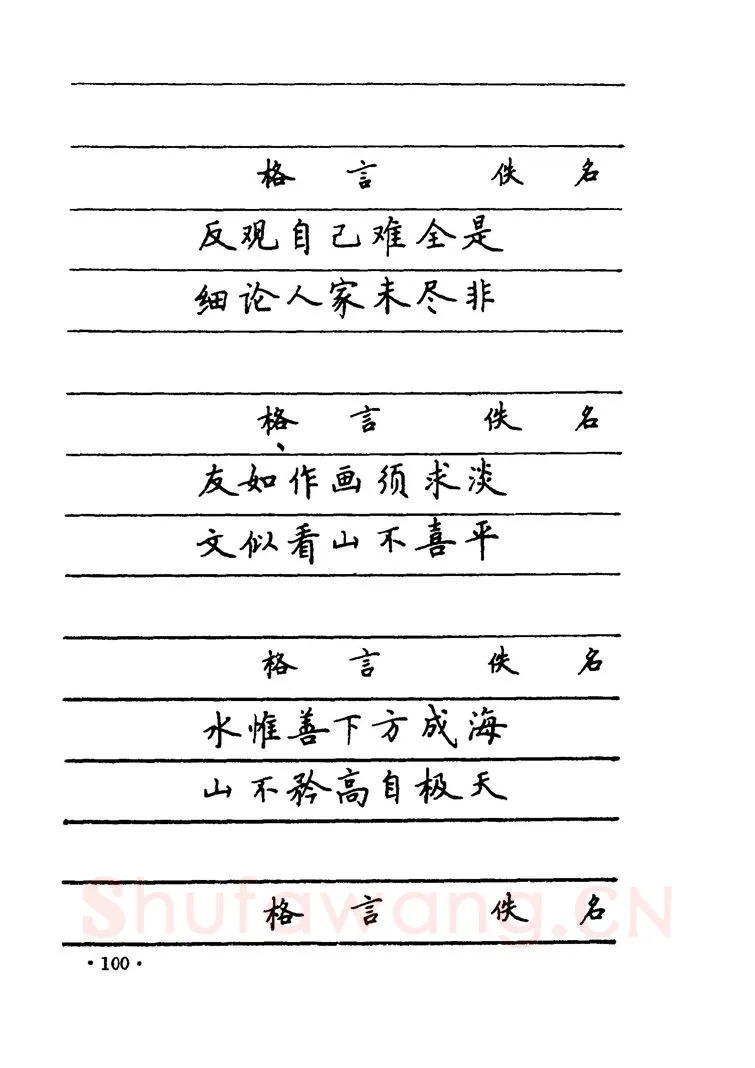 格言 佚名
反观自己难全是
细论人家未尽非
格言 佚名
友如作画须求淡
文似看山不喜平
格言 佚名
水惟善下方成海
山不矜高自极天
格言 佚名
Shufawang.CN
·100·